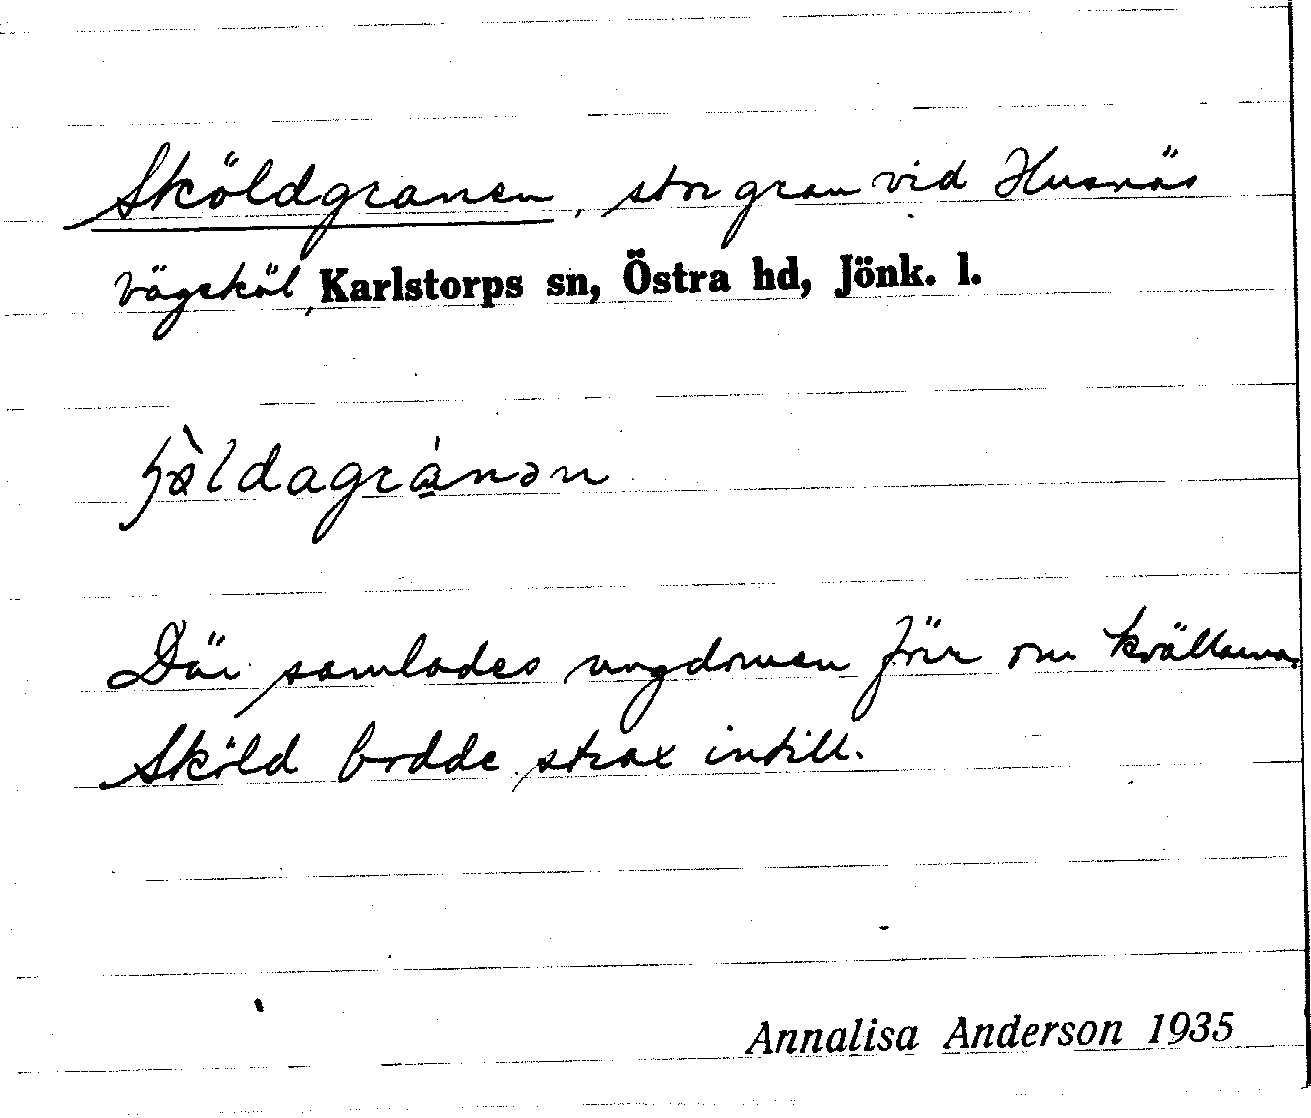 Sköldgranen, stor gran vid Husnäs
vägskäl, Karlstorps sn, Östra hd, Jönk. l.
Där samlades ungdomen förr om kvällarna.
Sköld bodde strax intill.
Annalisa Anderson 1935